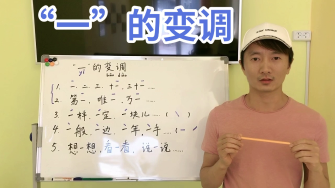 “一”的变调
“一”的变调
1. 一、二、三、十一、二十一……
2. 第一、唯一、万一……
3. 一样、一定、一块儿……（
4. 一般、一边、一年、一手……（一
5. 想一想、看一看、说一说……